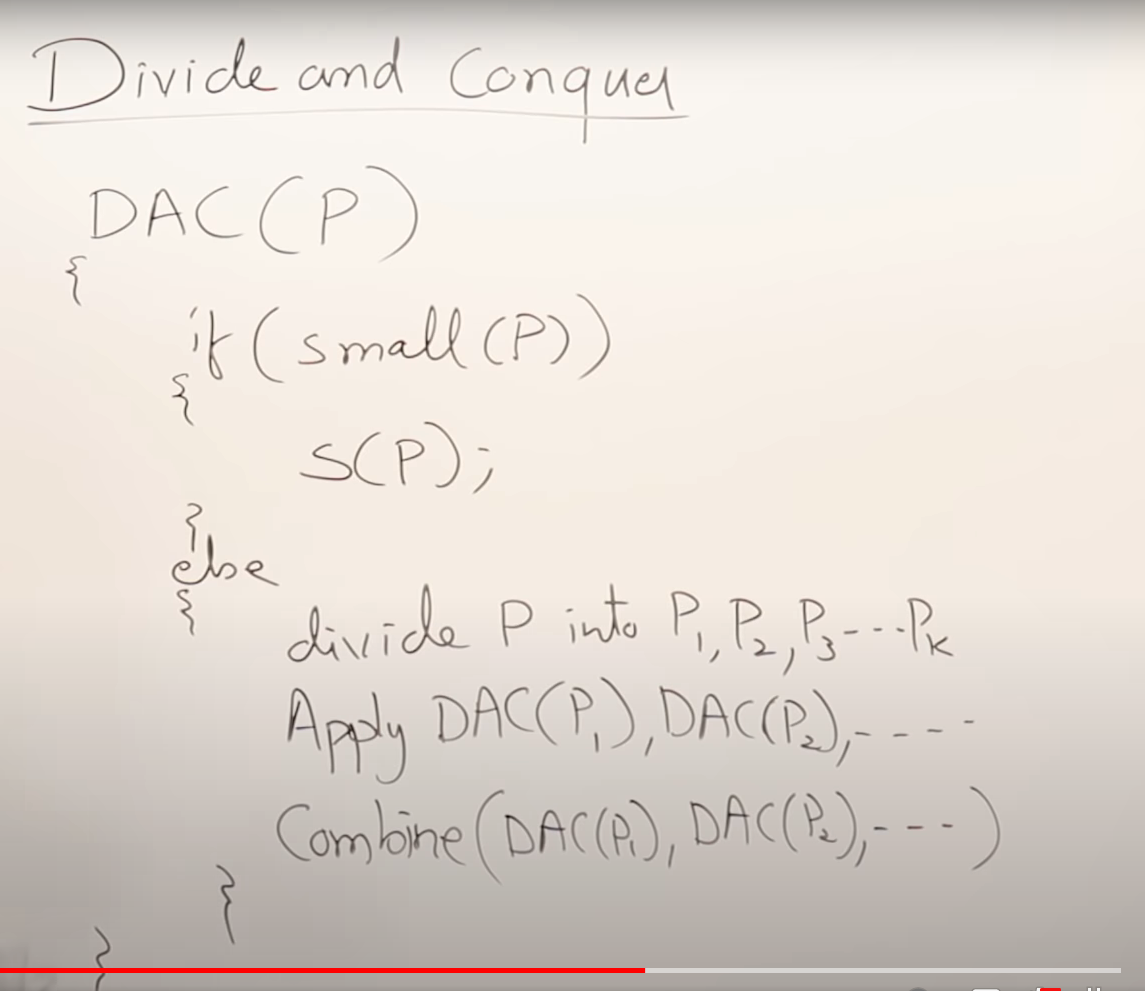 Divide and Conquer
DAC(P)
{
if(small(P))
{
S(P);
}
else
{
divide P into P₁, P₂, P₃---Pₖ
Apply DAC(P₁), DAC(P₂),----
Combine(DAC(P₁), DAC(P₂),---)
}
}